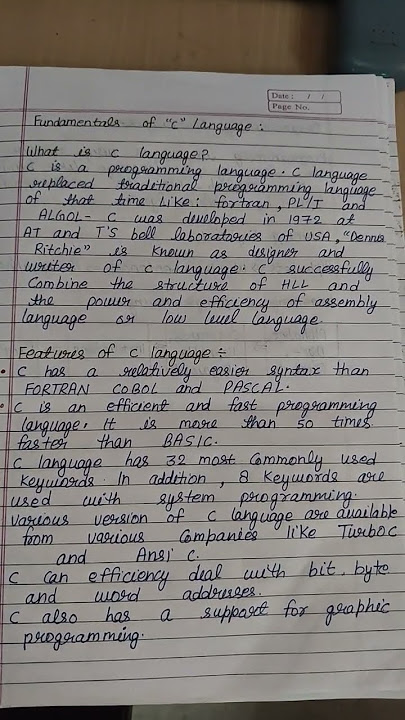 Date : / /
Page No.
Fundamentals of "C" Language :
What is C language?
C is a programming language. C language
replaced traditional programming language
of that time Like: fortran, PL/I and
ALGOL- C was developed in 1972 at
AT and T'S bell laboratories of USA, "Dennis
Ritchie" is known as designer and
writer of C language. C successfully
Combine the structure of HLL and
the power and efficiency of assembly
language or low level language.
Features of C language :-
• C has a relatively easier syntax than
FORTRAN COBOL and PASCAL.
• C is an efficient and fast programming
language. It is more than 50 times
faster than BASIC.
C language has 32 most commonly used
Keywords. In addition, 8 Keywords are
used with system programming.
various version of C language are available
from various Companies like TurboC
and Ansi C.
C can efficiency deal with bit, byte
and word addresses.
C also has a support for graphic
programming.